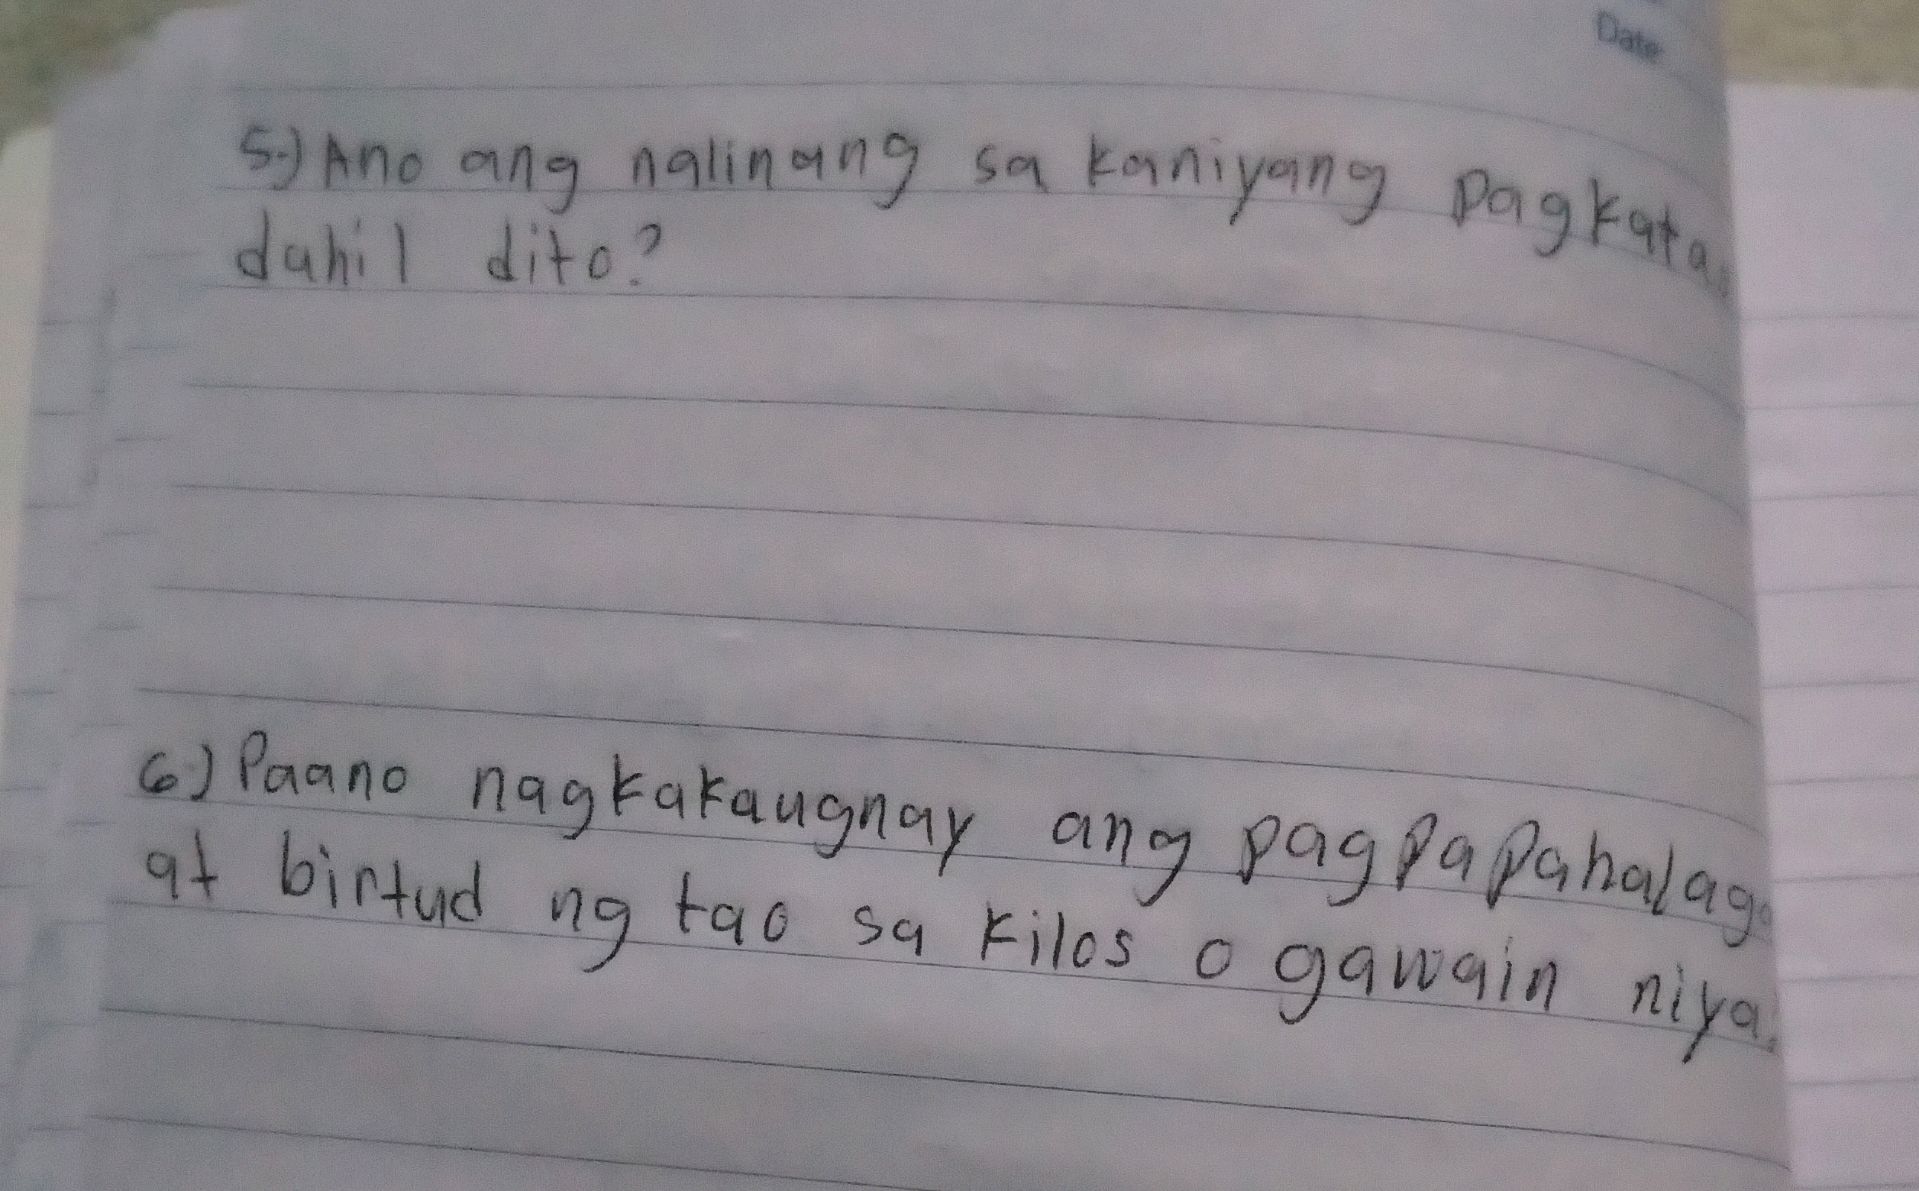 Date
5.) Ano ang nalinang sa kaniyang pagkata
dahil dito?
6.) Paano nagkakaugnay ang pagpapahalaga
at birtud ng tao sa kilos o gawain niya.